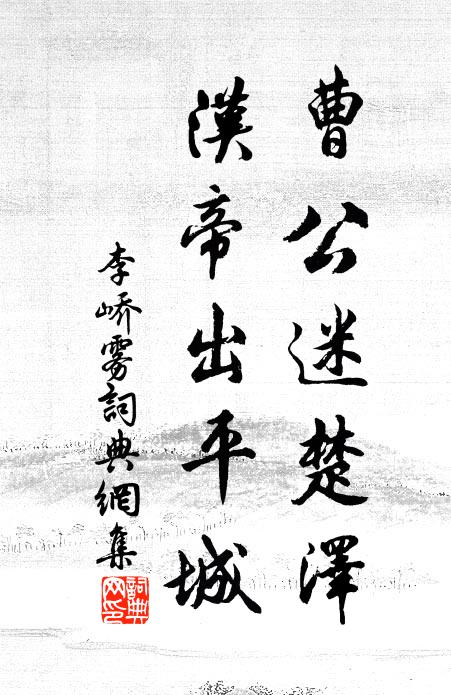 曹公迷楚澤
漢帝出平城
李嶠雾詞典網集
詞典网印